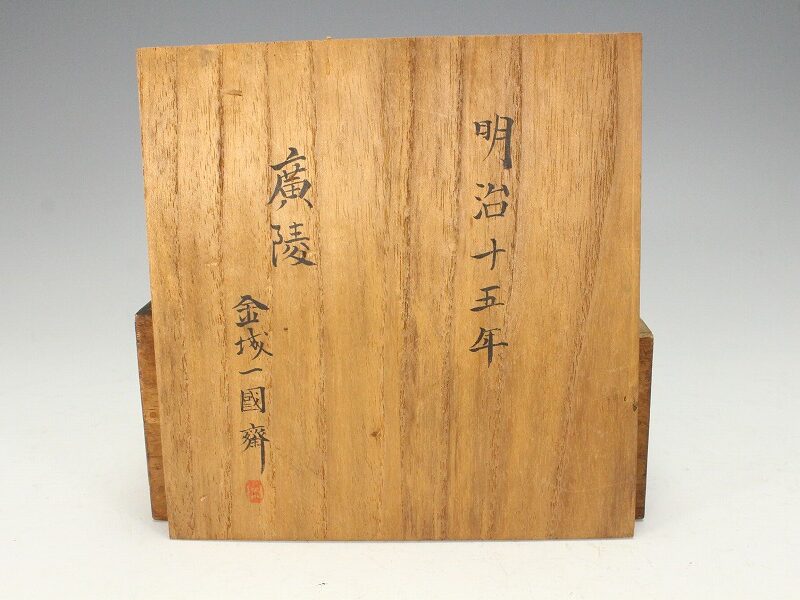 明治十五年
廣陵
金城一國齋